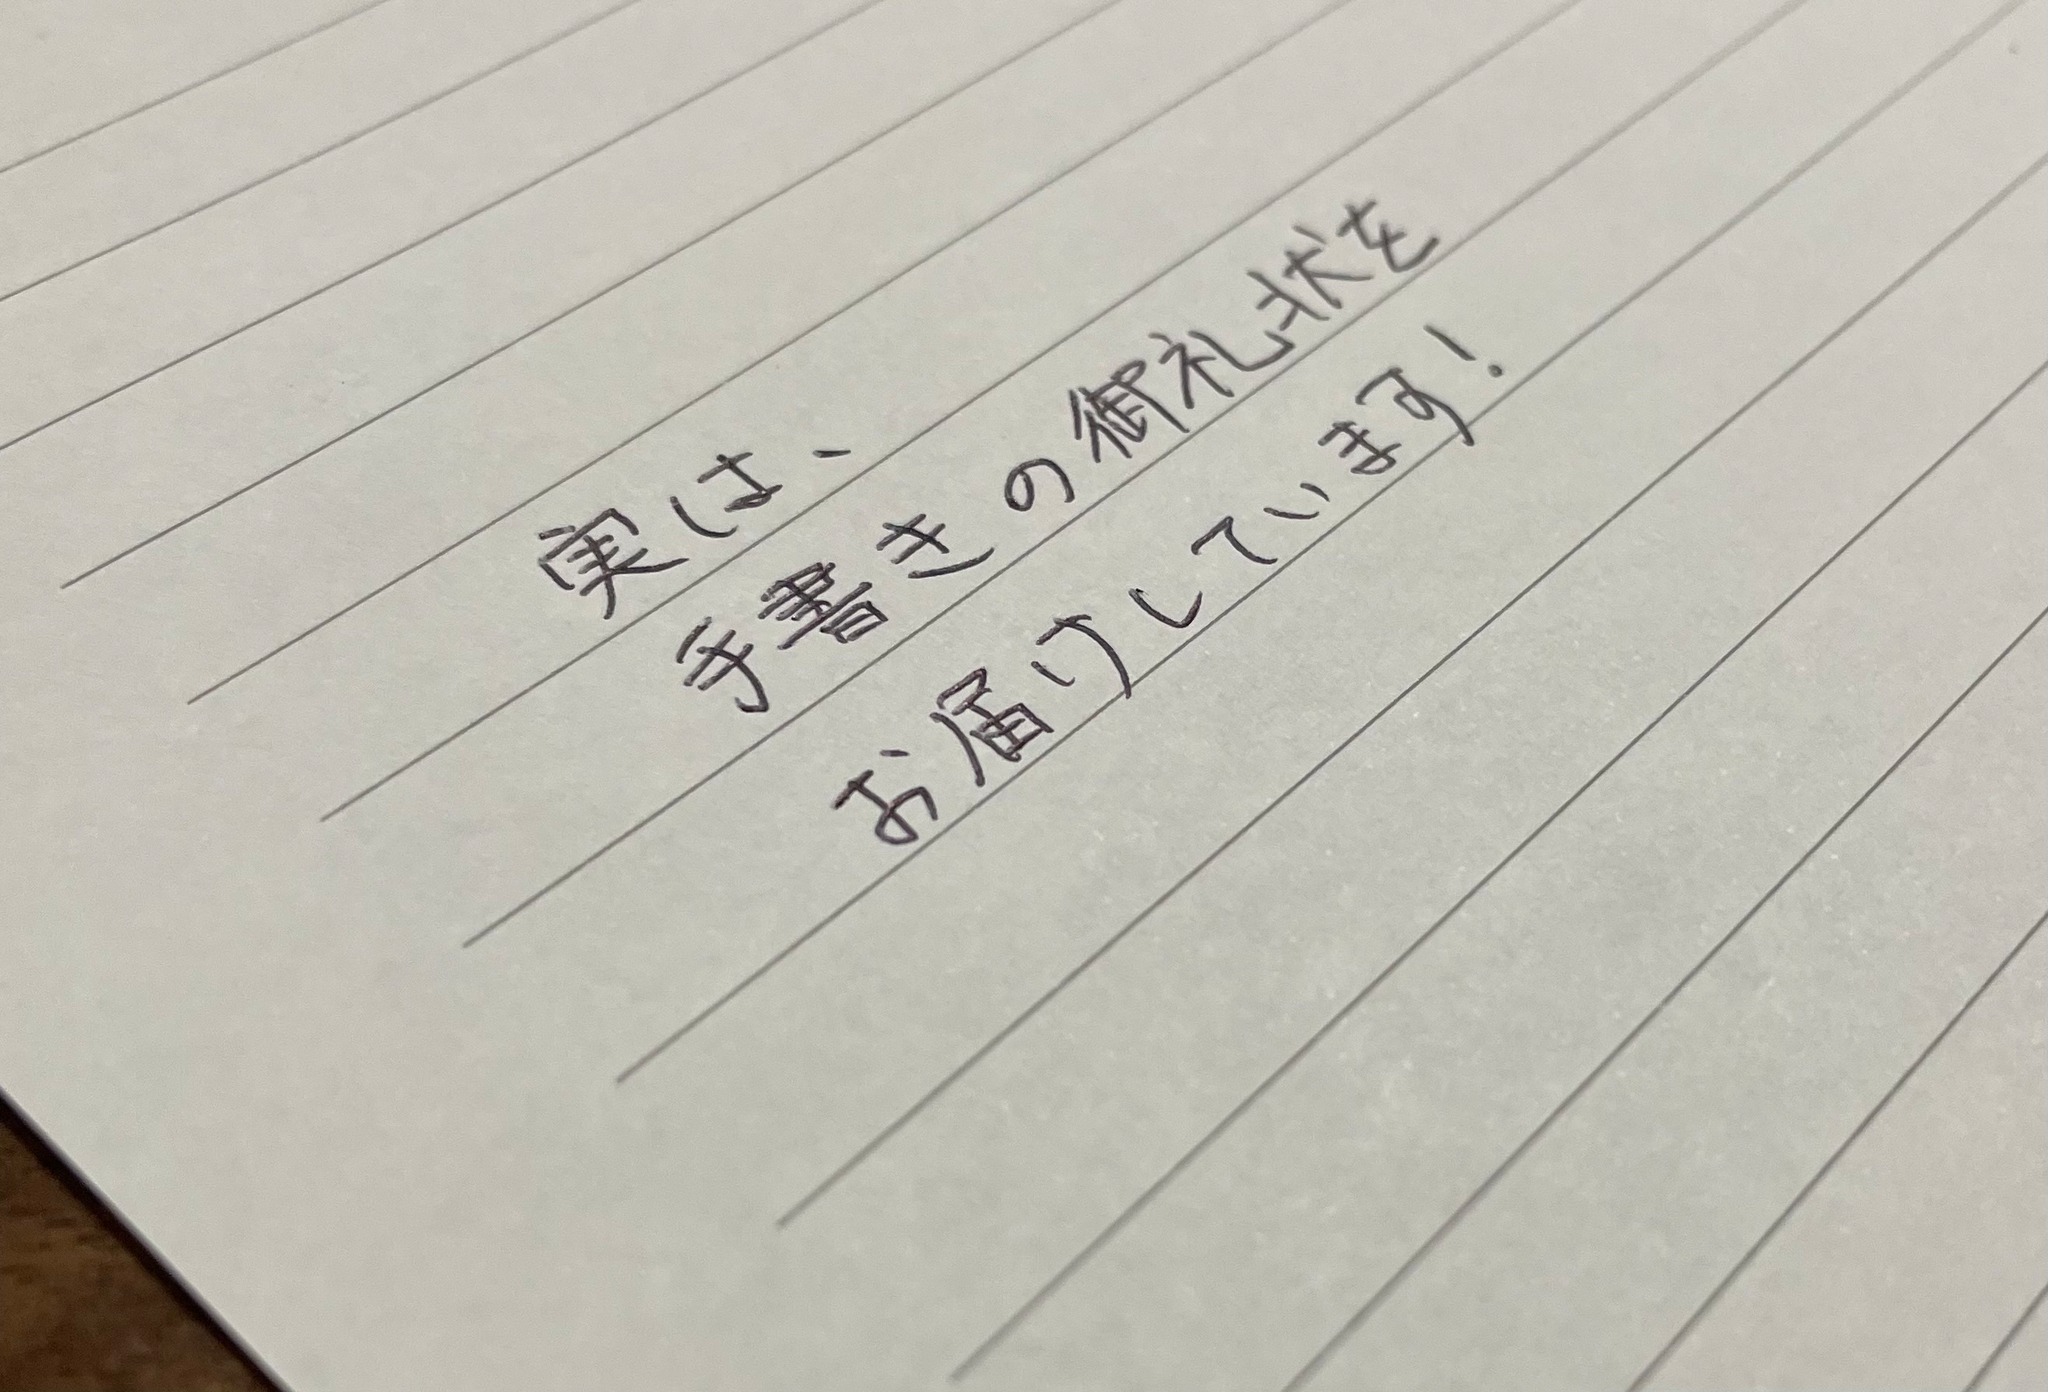 実は、
手書きの御礼状を
お届けしています!